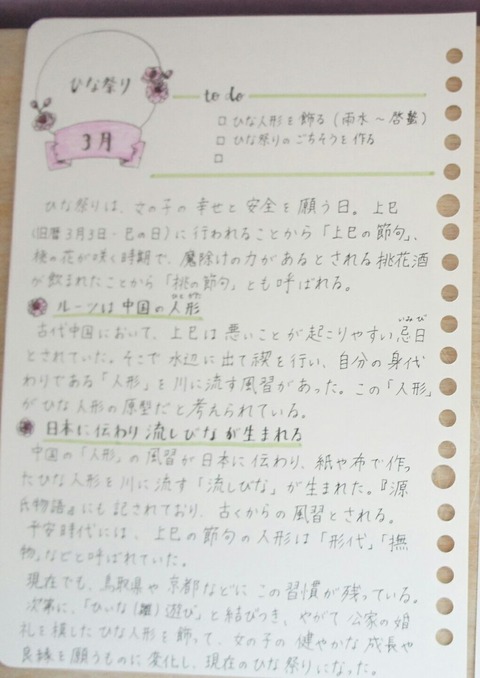 ひな祭り
3月
to do
□ ひな人形を飾る (雨水～啓蟄)
□ ひな祭りのごちそうを作る
□
ひな祭りは、女の子の幸せと安全を願う日。上巳
(旧暦3月3日・巳の日)に行われることから「上巳の節句」、
桃の花が咲く時期で、魔除けの力があるとされる桃花酒
が飲まれたことから「桃の節句」とも呼ばれる。
ルーツは中国の人形
ひとがた
古代中国において、上巳は悪いことが起こりやすい忌日
いみび
とされていた。そこで水辺に出て禊を行い、自分の身代
わりである「人形」を川に流す風習があった。この「人形」
がひな人形の原型だと考えられている。
日本に伝わり流しびなが生まれる
中国の「人形」の風習が日本に伝わり、紙や布で作っ
たひな人形を川に流す「流しびな」が生まれた。『源
氏物語』にも記されており、古くからの風習とされる。
平安時代には、上巳の節句の人形は「形代」「撫
物」などと呼ばれていた。
現在でも、鳥取県や京都などにこの習慣が残っている。
次第に、「ひいな(雛)遊び」と結びつき、やがて公家の婚
礼を模したひな人形を飾って、女の子の健やかな成長や
良縁を願うものに変化し、現在のひな祭りになった。